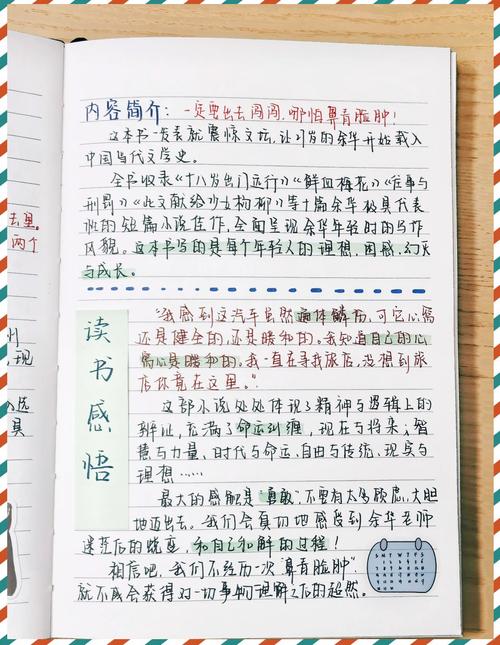 内容简介：一定要出去闯闯，哪怕鼻青脸肿！
这本书一发表就震惊文坛，让27岁的余华开始载入
中国当代文学史。
全书收录《十八岁出门远行》《鲜血梅花》《往事与
刑罚》《此文献给少女杨柳》等十篇余华极具代表
班的短篇小说佳作，全面呈现余华年轻时的写作
风貌。这本书写的是每个年轻人的理想、困惑、幻灭
与成长。
读书感悟
"我感到这汽车虽然遍体鳞伤，可它心窝
还是健全的，还是暖和的。我知道自己的心
窝也是暖和的。我一直在寻找旅店，没想到旅
店你竟在这里。"
这部小说处处体现了精神与逻辑上的
辨证，充满了命运纠缠，现在与将来、智慧
与力量、时代与命运、自由与传统、现实与
理想……
最大的感触是"勇敢"，不要有太多顾虑，大胆
地迈出去。我们会真切地感受到余华老师
迷茫后的蜕变，和自己和解的过程！
相信吧，我们不经历一次"鼻青脸肿"，
就不会获得对一切事物理解之后的超然。
去里。
两个
现
选
具
S M T W T F S